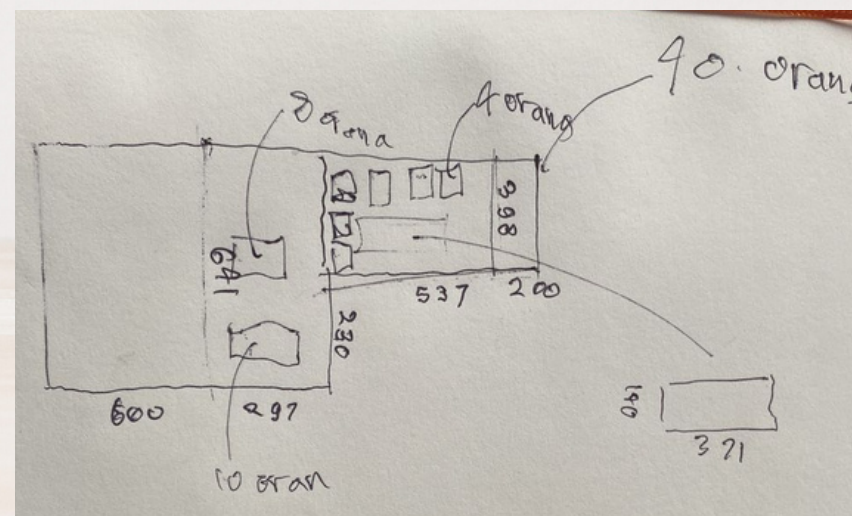 40. orang
8 orang
4 orang
398
641
537
200
230
600
297
190
371
10 oran